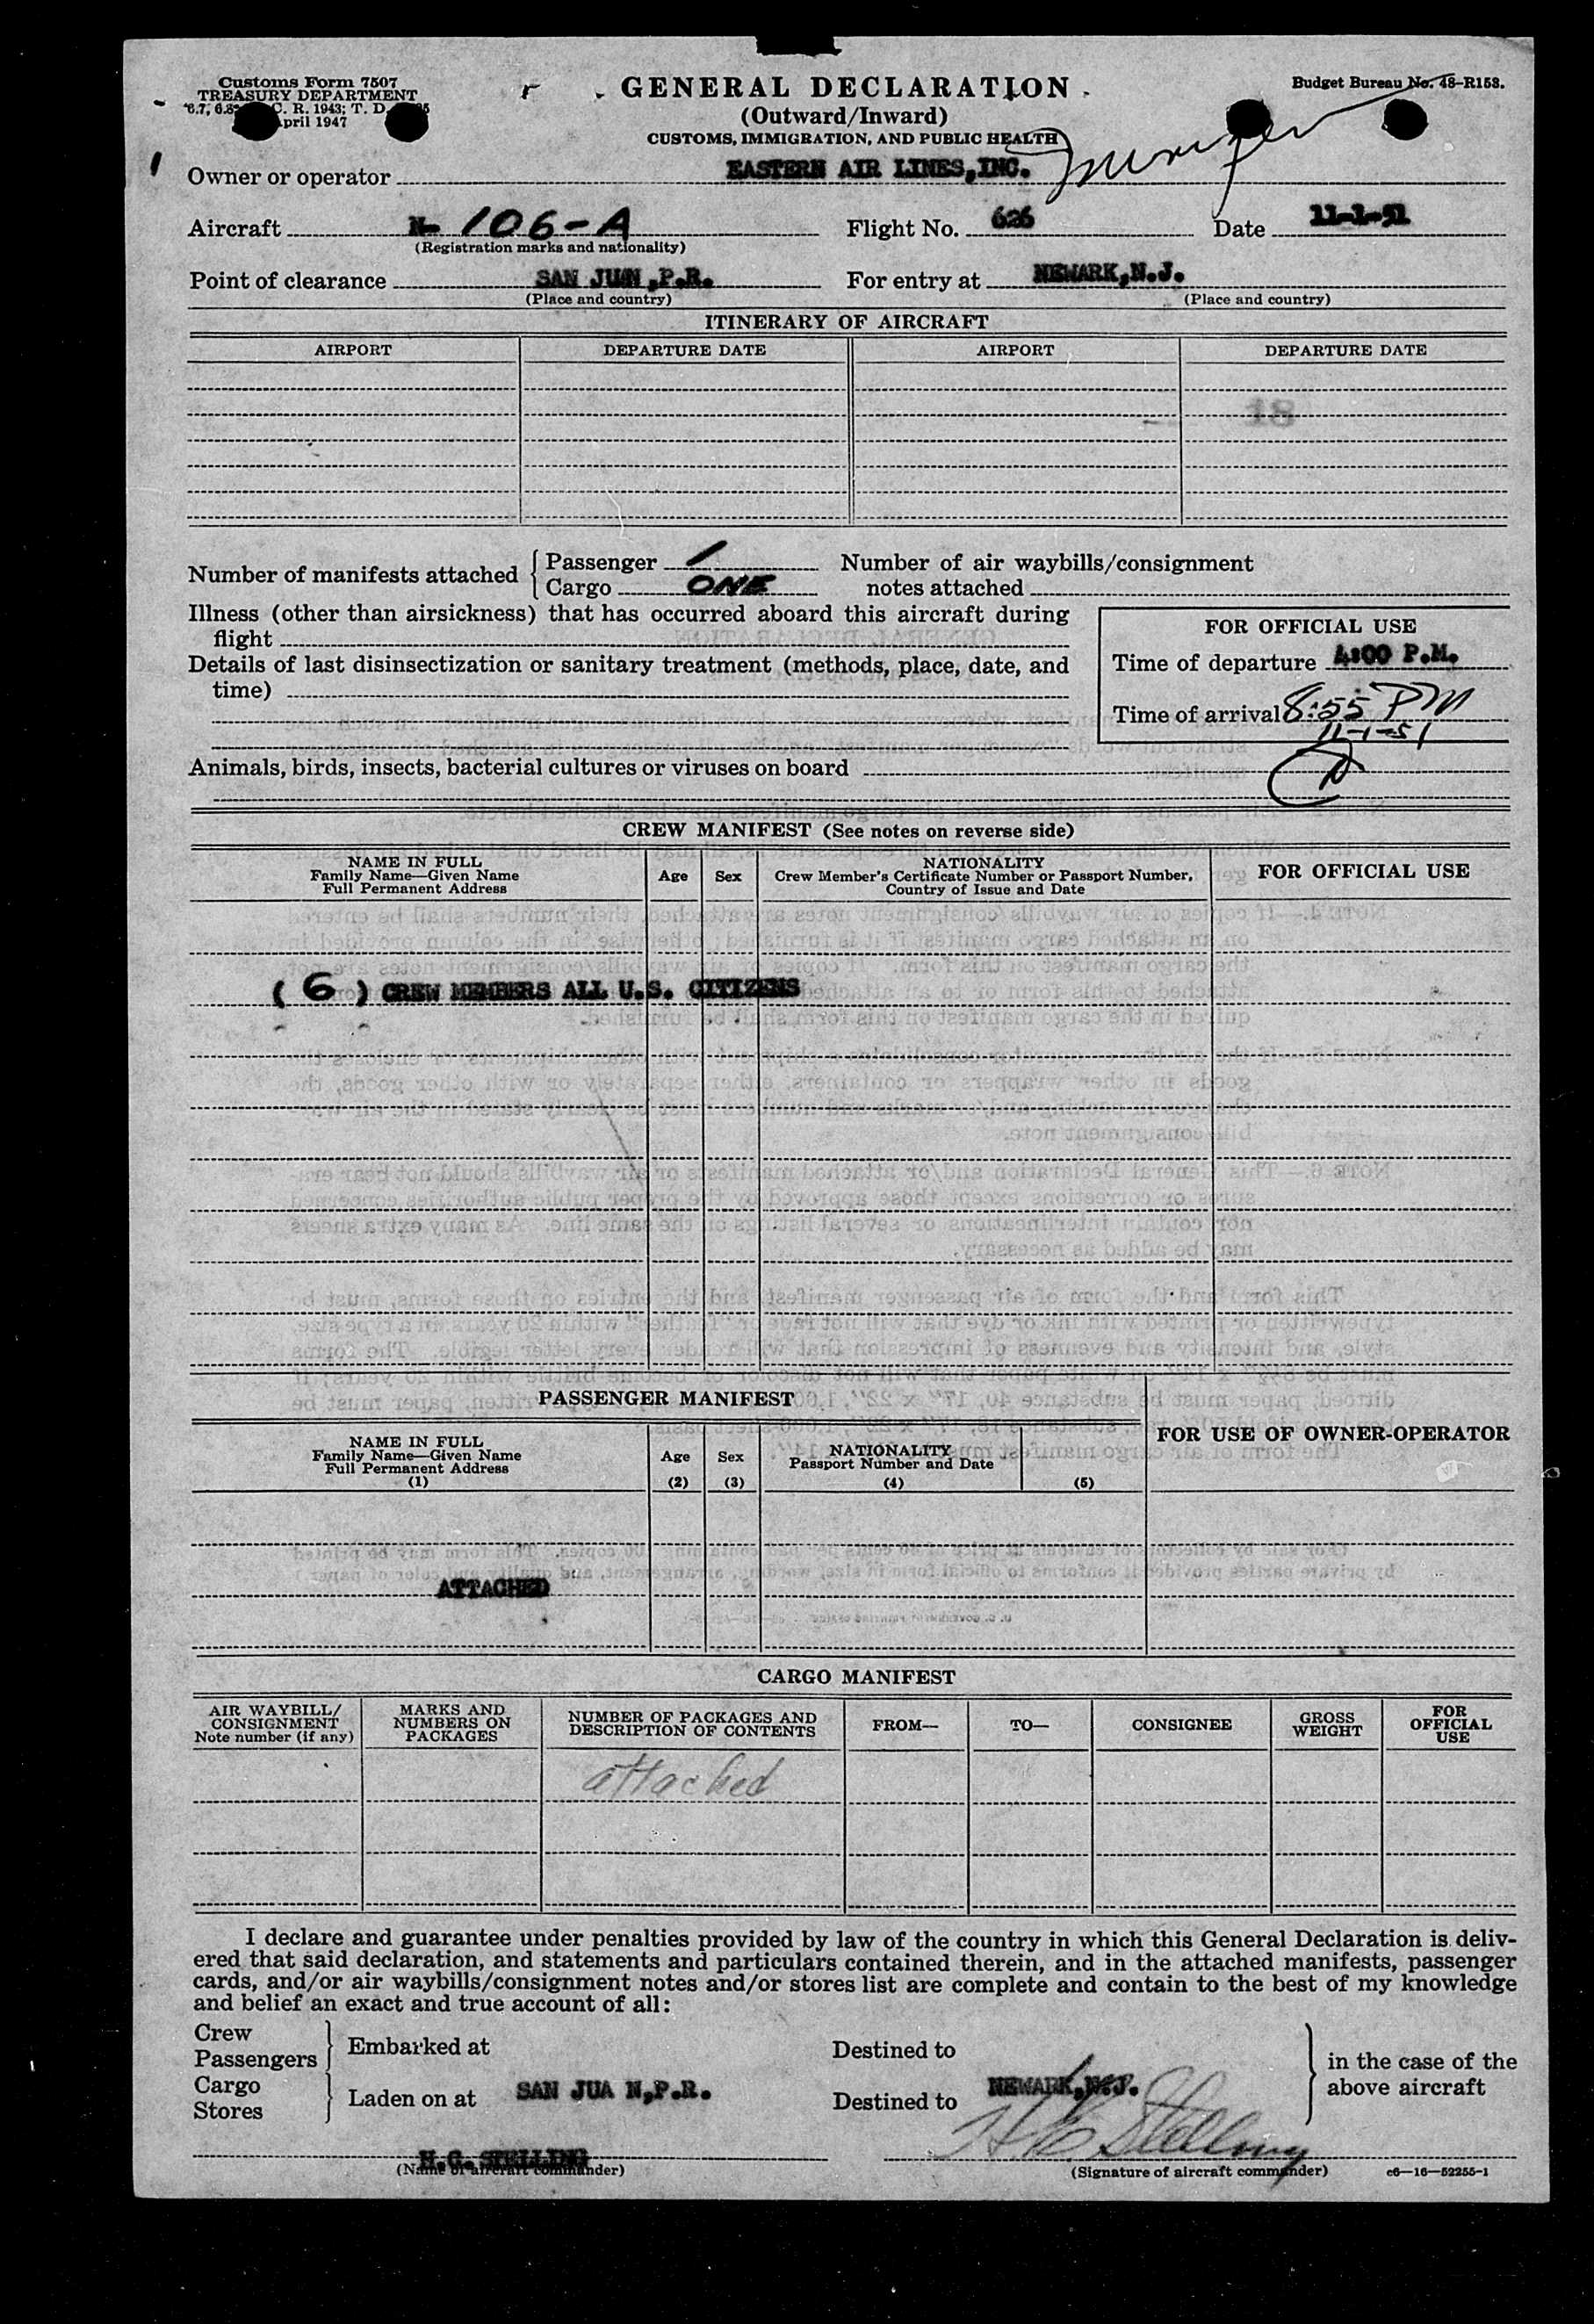 Customs Form 7507
TREASURY DEPARTMENT
C. R. 1943; T. D.
April 1947
GENERAL DECLARATION
(Outward/Inward)
CUSTOMS, IMMIGRATION, AND PUBLIC HEALTH
Budget Bureau No. 48-R153.
Owner or operator EASTERN AIR LINES,INC.
Aircraft N- 106-A Flight No. 626 Date 11-1-51
(Registration marks and nationality)
Point of clearance SAN JUAN,P.R. For entry at NEWARK,N.J.
(Place and country) (Place and country)
ITINERARY OF AIRCRAFT
AIRPORT DEPARTURE DATE AIRPORT DEPARTURE DATE
18
Number of manifests attached { Passenger 1 Number of air waybills/consignment
Cargo ONE notes attached
Illness (other than airsickness) that has occurred aboard this aircraft during
flight
Details of last disinsectization or sanitary treatment (methods, place, date, and
time)
FOR OFFICIAL USE
Time of departure 4:00 P.M.
Time of arrival 8:55 PM
11-1-51
Animals, birds, insects, bacterial cultures or viruses on board
CREW MANIFEST (See notes on reverse side)
NAME IN FULL
Family Name—Given Name
Full Permanent Address
Age Sex
NATIONALITY
Crew Member's Certificate Number or Passport Number,
Country of Issue and Date
FOR OFFICIAL USE
( 6 ) CREW MEMBERS ALL U.S. CITIZENS
PASSENGER MANIFEST
NAME IN FULL
Family Name—Given Name
Full Permanent Address
(1)
Age
(2)
Sex
(3)
NATIONALITY
Passport Number and Date
(4) (5)
FOR USE OF OWNER-OPERATOR
ATTACHED
CARGO MANIFEST
AIR WAYBILL/
CONSIGNMENT
Note number (if any)
MARKS AND
NUMBERS ON
PACKAGES
NUMBER OF PACKAGES AND
DESCRIPTION OF CONTENTS
FROM— TO— CONSIGNEE
GROSS
WEIGHT
FOR
OFFICIAL
USE
attached
I declare and guarantee under penalties provided by law of the country in which this General Declaration is deliv-
ered that said declaration, and statements and particulars contained therein, and in the attached manifests, passenger
cards, and/or air waybills/consignment notes and/or stores list are complete and contain to the best of my knowledge
and belief an exact and true account of all:
Crew
Passengers } Embarked at Destined to
Cargo
Stores } Laden on at SAN JUA N,P.R. Destined to NEWARK,N.J.
in the case of the
above aircraft
H.C. STELLING H C Stelling
(Name of aircraft commander) (Signature of aircraft commander) c6—16—52255-1